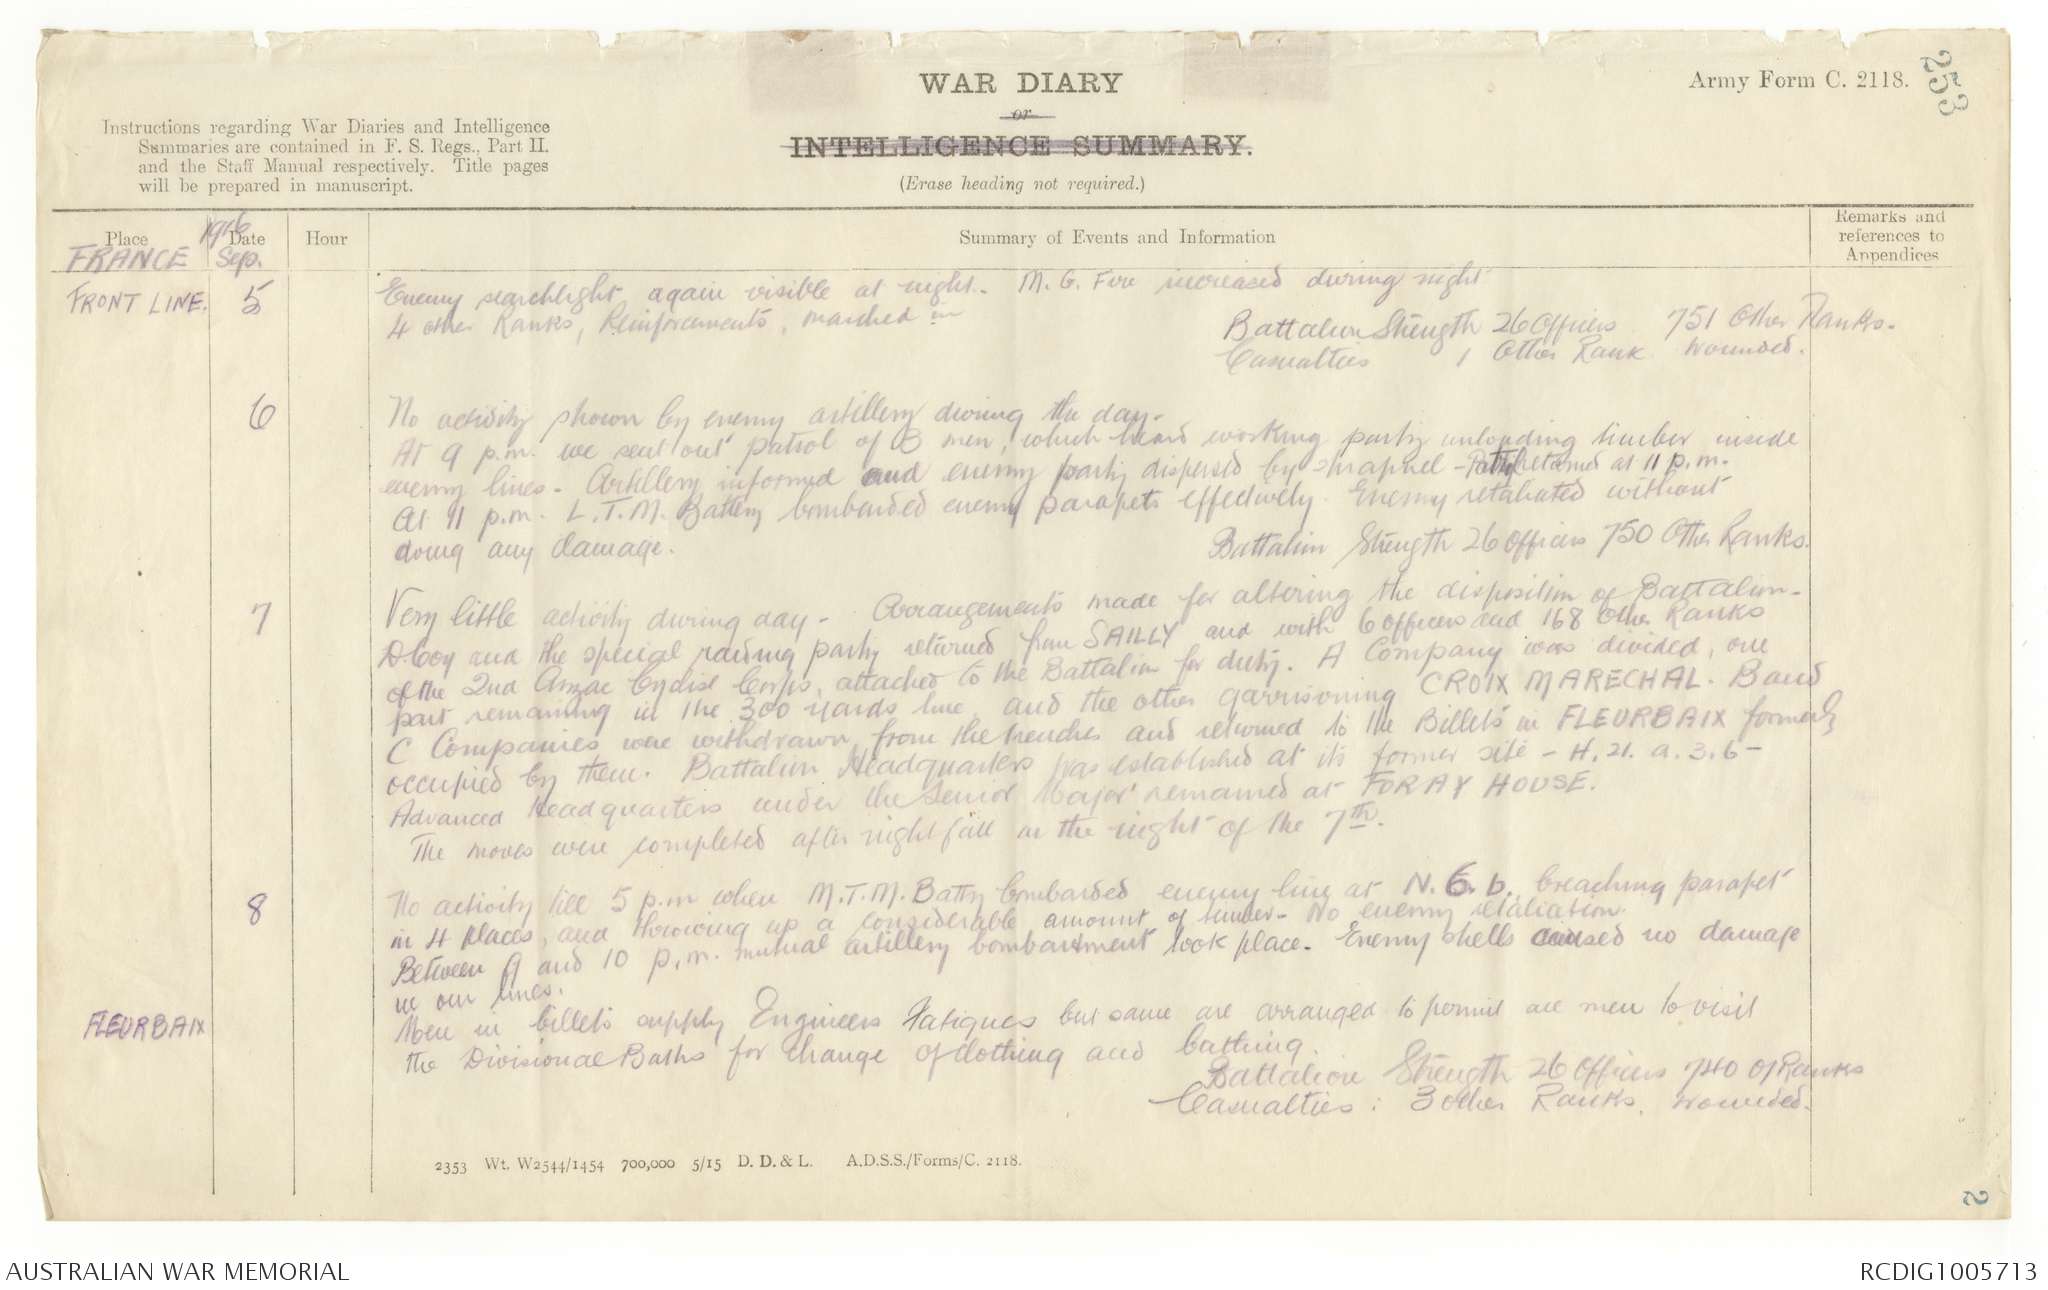 WAR DIARY
or
INTELLIGENCE SUMMARY.
(Erase heading not required.)
Army Form C. 2118.
253
Instructions regarding War Diaries and Intelligence
Summaries are contained in F. S. Regs., Part II.
and the Staff Manual respectively. Title pages
will be prepared in manuscript.
Place
1916
Date
Hour
Summary of Events and Information
Remarks and
references to
Appendices
FRANCE Sep.
FRONT LINE. 5 Enemy searchlight again visible at night. M. G. Fire increased during night
4 other Ranks, Reinforcements, marched in
Battalion Strength 26 Officers 751 Other Ranks.
Casualties 1 Other Rank wounded.
6 No activity shown by enemy artillery during the day.
At 9 p.m. we sent out patrol of 3 men, which heard working party unloading timber inside
enemy lines. Artillery informed and enemy party dispersed by shrapnel - Patrol returned at 11 p.m.
At 11 p.m. L.T.M. Battery bombarded enemy parapets effectively. Enemy retaliated without
doing any damage.
Battalion Strength 26 Officers 750 Other Ranks.
7 Very little activity during day - Arrangements made for altering the disposition of Battalion -
D Coy and the special raiding party returned from SAILLY and with 6 officers and 168 Other Ranks
of the 2nd Anzac Cyclist Corps, attached to the Battalion for duty. A Company was divided, one
part remaining in the 300 yards line and the other garrisoning CROIX MARECHAL. B and
C Companies were withdrawn from the trenches and returned to the Billets in FLEURBAIX formerly
occupied by them. Battalion Headquarters was established at its former site - H. 21. a. 3. 6 -
Advanced Headquarters under the Senior Major remained at FORAY HOUSE.
The moves were completed after nightfall on the night of the 7th.
8 No activity till 5 p.m when M.T.M. Batty bombarded enemy line at N. 6. b. breaching parapet
in 4 places, and throwing up a considerable amount of timber - No enemy retaliation.
Between 9 and 10 p.m. mutual artillery bombardment took place. Enemy shells caused no damage
in our lines.
FLEURBAIX Men in billets supply Engineers Fatigues but same are arranged to permit all men to visit
the Divisional Baths for change of clothing and bathing.
Battalion Strength 26 Officers 740 O/Ranks
Casualties: 3 other Ranks. wounded.
2353 Wt. W2544/1454 700,000 5/15 D. D. & L. A.D.S.S./Forms/C. 2118.
2
AUSTRALIAN WAR MEMORIAL
RCDIG1005713